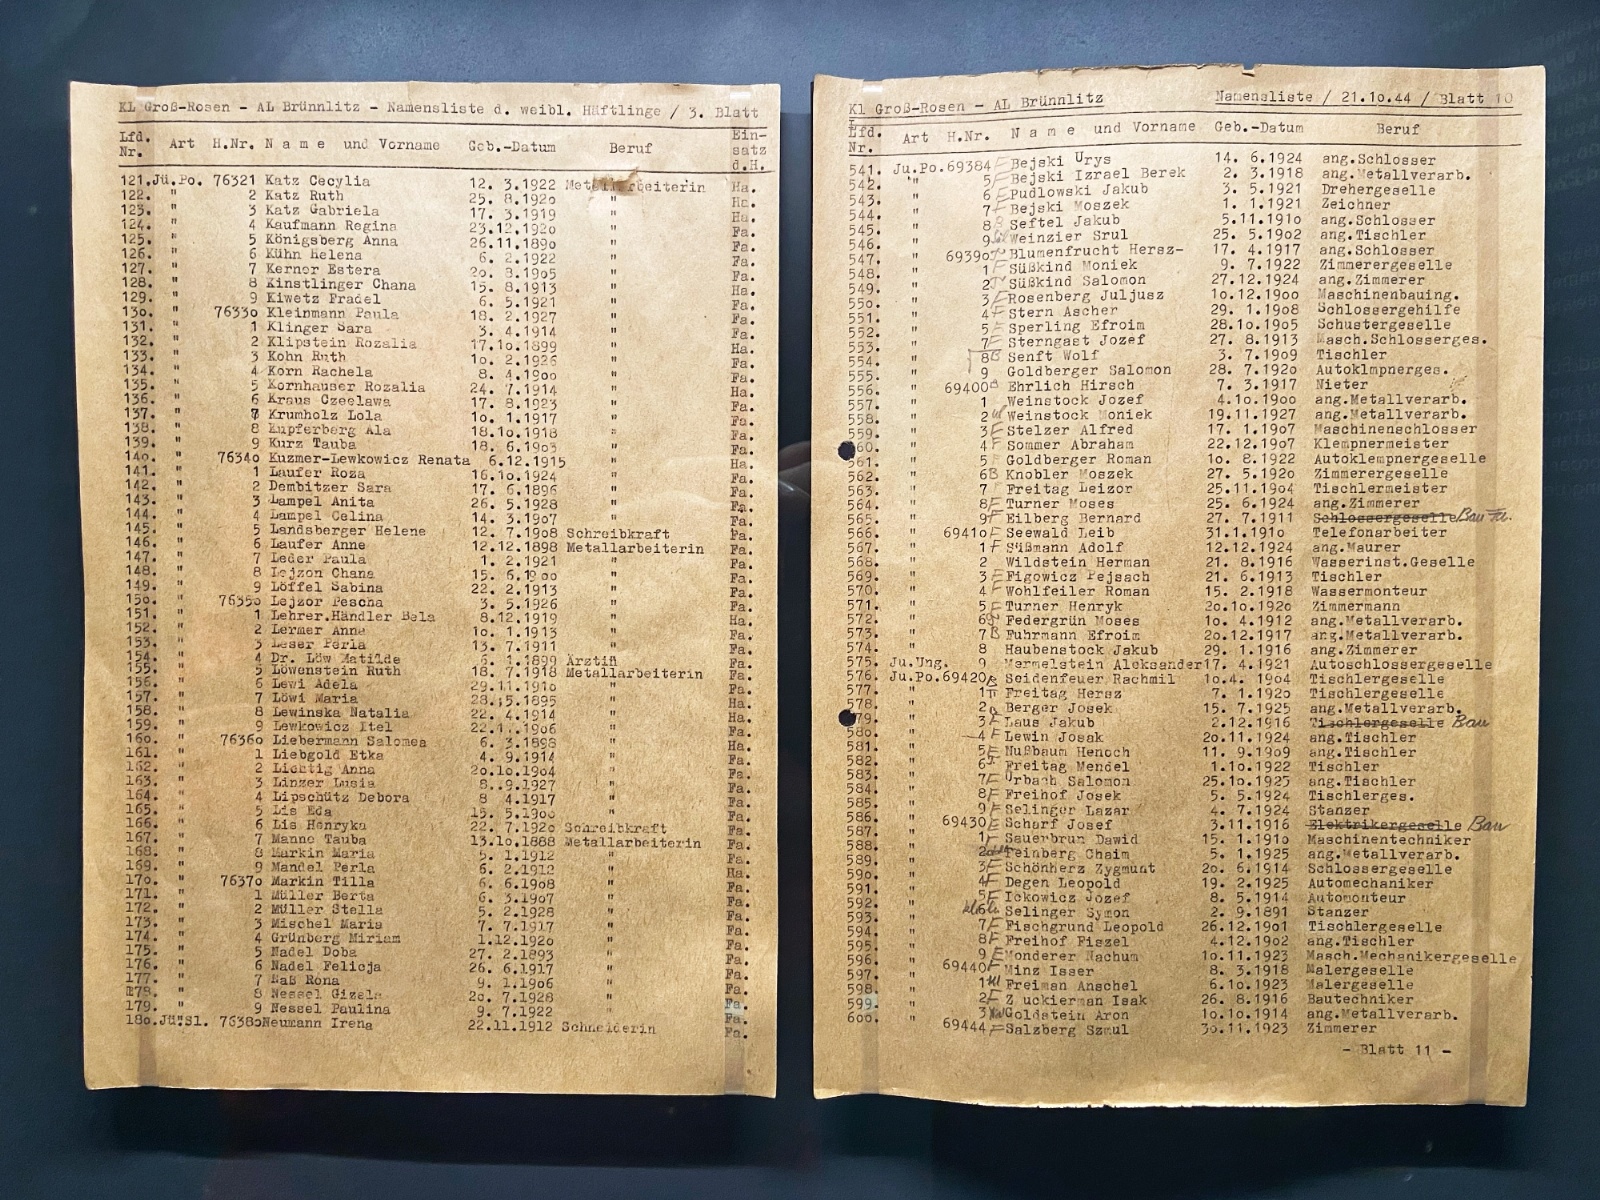 KL Groß-Rosen - AL Brünnlitz - Namensliste d. weibl. Häftlinge / 3. Blatt
Lfd. Nr. Art H.Nr. Name und Vorname Geb.-Datum Beruf Ein-satz d.H.
121. Jü.Po. 76321 Katz Cecylia 12. 3.1922 Metallarbeiterin Ha.
122. " 2 Katz Ruth 25. 8.192o " Ha.
123. " 3 Katz Gabriela 17. 3.1919 " Ha.
124. " 4 Kaufmann Regina 23.12.192o " Fa.
125. " 5 Königsberg Anna 26.11.189o " Fa.
126. " 6 Kühn Helena 6. 2.1922 " Fa.
127. " 7 Kerner Estera 2o. 8.19o5 " Fa.
128. " 8 Kinstlinger Chana 15. 8.1913 " Ha.
129. " 9 Kiwetz Fradel 6. 5.1921 " Fa.
13o. " 7633o Kleinmann Paula 18. 2.1927 " Fa.
131. " 1 Klinger Sara 3. 4.1914 " Fa.
132. " 2 Klipstein Rozalia 17.1o.1899 " Ha.
133. " 3 Kohn Ruth 1o. 2.1926 " Fa.
134. " 4 Korn Rachela 8. 4.19oo " Fa.
135. " 5 Kornhauser Rozalia 24. 7.1914 " Ha.
136. " 6 Kraus Czeslawa 17. 8.1923 " Fa.
137. " 7 Krumholz Lola 1o. 1.1917 " Fa.
138. " 8 Kupferberg Ala 18.1o.1918 " Fa.
139. " 9 Kurz Tauba 18. 6.19o3 " Fa.
14o. " 7634o Kuzmer-Lewkowicz Renata 6.12.1915 " Ha.
141. " 1 Laufer Roza 16.1o.1924 " Fa.
142. " 2 Dembitzer Sara 17. 6.1896 " Fa.
143. " 3 Lampel Anita 26. 5.1928 " Fa.
144. " 4 Lampel Celina 14. 3.19o7 " Fa.
145. " 5 Landsberger Helene 12. 7.19o8 Schreibkraft Fa.
146. " 6 Laufer Anne 12.12.1898 Metallarbeiterin Fa.
147. " 7 Leder Paula 1. 2.1921 " Fa.
148. " 8 Lejzon Chana 15. 6.19oo " Fa.
149. " 9 Löffel Sabina 22. 2.1913 " Fa.
15o. " 7635o Lejzor Pescha 3. 5.1926 " Fa.
151. " 1 Lehrer.Händler Bela 8.12.1919 " Ha.
152. " 2 Lermer Anna 1o. 1.1913 " Fa.
153. " 3 Leser Perla 13. 7.1911 " Fa.
154. " 4 Dr. Löw Matilde 6. 1.1899 Ärztin Fa.
155. " 5 Löwenstein Ruth 18. 7.1918 Metallarbeiterin Fa.
156. " 6 Lewi Adela 29.11.191o " Fa.
157. " 7 Löwi Maria 28. 5.1895 " Fa.
158. " 8 Lewinska Natalia 22. 4.1914 " Ha.
159. " 9 Lewkowicz Itel 22.11.19o6 " Fa.
16o. " 7636o Liebermann Salomea 6. 3.1898 " Ha.
161. " 1 Liebgold Etka 4. 9.1914 " Fa.
162. " 2 Lichtig Anna 2o.1o.19o4 " Fa.
163. " 3 Linzer Lusia 8. 9.1927 " Fa.
164. " 4 Lipschütz Debora 8 4.1917 " Fa.
165. " 5 Lis Eda 15. 5.19oo " Fa.
166. " 6 Lis Henryka 22. 7.192o Schreibkraft Fa.
167. " 7 Manne Tauba 13.1o.1888 Metallarbeiterin Fa.
168. " 8 Markin Maria 5. 1.1912 " Fa.
169. " 9 Mandel Perla 6. 2.1912 " Ha.
17o. " 7637o Markin Tilla 6. 6.19o8 " Fa.
171. " 1 Müller Berta 6. 3.19o7 " Fa.
172. " 2 Müller Stella 5. 2.1928 " Fa.
173. " 3 Mischel Maria 7. 7.1917 " Fa.
174. " 4 Grünberg Miriam 1.12.192o " Fa.
175. " 5 Nadel Doba 27. 2.1893 " Fa.
176. " 6 Nadel Felicja 26. 6.1917 " Fa.
177. " 7 Naß Rona 9. 1.19o6 " Fa.
178. " 8 Nessel Gizela 2o. 7.1928 " Fa.
179. " 9 Nessel Paulina 9. 7.1922 " Fa.
18o. Jü.Sl. 7638o Neumann Irena 22.11.1912 Schneiderin Fa.
Kl Groß-Rosen - AL Brünnlitz Namensliste / 21.1o.44 / Blatt 1o
Lfd. Nr. Art H.Nr. Name und Vorname Geb.-Datum Beruf
541. Ju.Po. 69384 Bejski Urys 14. 6.1924 ang.Schlosser
542. " 5 Bejski Izrael Berek 2. 3.1918 ang.Metallverarb.
543. " 6 Pudlowski Jakub 3. 5.1921 Drehergeselle
544. " 7 Bejski Moszek 1. 1.1921 Zeichner
545. " 8 Seftel Jakub 5.11.191o ang.Schlosser
546. " 9 Weinzier Srul 25. 5.19o2 ang.Tischler
547. " 6939o Blumenfrucht Hersz- 17. 4.1917 ang.Schlosser
548. " 1 Süßkind Moniek 9. 7.1922 Zimmerergeselle
549. " 2 Süßkind Salomon 27.12.1924 ang.Zimmerer
55o. " 3 Rosenberg Juljusz 1o.12.19oo Maschinenbauing.
551. " 4 Stern Ascher 29. 1.19o8 Schlossergehilfe
552. " 5 Sperling Efroim 28.1o.19o5 Schustergeselle
553. " 7 Sterngast Jozef 27. 8.1913 Masch.Schlosserges.
554. " 8 Senft Wolf 3. 7.19o9 Tischler
555. " 9 Goldberger Salomon 28. 7.192o Autoklmpnerges.
556. " 694oo Ehrlich Hirsch 7. 3.1917 Nieter
557. " 1 Weinstock Jozef 4.1o.19oo ang.Metallverarb.
558. " 2 Weinstock Moniek 19.11.1927 ang.Metallverarb.
559. " 3 Stelzer Alfred 17. 1.19o7 Maschinenschlosser
60. " 4 Sommer Abraham 22.12.19o7 Klempnermeister
561. " 5 Goldberger Roman 1o. 8.1922 Autoklempnergeselle
562. " 6 Knobler Moszek 27. 5.192o Zimmerergeselle
563. " 7 Freitag Leizor 25.11.19o4 Tischlermeister
564. " 8 Turner Moses 25. 6.1924 ang.Zimmerer
565. " 9 Eilberg Bernard 27. 7.1911 Schlossergeselle Bau
566. " 6941o Seewald Leib 31.1.191o Telefonarbeiter
567. " 1 Süßmann Adolf 12.12.1924 ang.Maurer
568. " 2 Wildstein Herman 21. 8.1916 Wasserinst.Geselle
569. " 3 Figowicz Pejsach 21. 6.1913 Tischler
57o. " 4 Wohlfeiler Roman 15. 2.1918 Wassermonteur
571. " 5 Turner Henryk 2o.1o.192o Zimmermann
572. " 6 Federgrün Moses 1o. 4.1912 ang.Metallverarb.
573. " 7 Fuhrmann Efroim 2o.12.1917 ang.Metallverarb.
574. " 8 Haubenstock Jakub 29. 1.1916 ang.Zimmerer
575. Ju.Ung. 9 Mermelstein Aleksander 17. 4.1921 Autoschlossergeselle
576. Ju.Po. 6942o Seidenfeuer Rachmil 1o.4. 19o4 Tischlergeselle
577. " 1 Freitag Hersz 7. 1.192o Tischlergeselle
578. " 2 Berger Josek 15. 7.1925 ang.Metallverarb.
79. " 3 Laus Jakub 2.12.1916 Tischlergeselle Bau
58o. " 4 Lewin Josak 2o.11.1924 ang.Tischler
581. " 5 Nußbaum Henoch 11. 9.19o9 ang.Tischler
582. " 6 Freitag Mendel 1.1o.1922 Tischler
583. " 7 Urbach Salomon 25.1o.1925 ang.Tischler
584. " 8 Freihof Josek 5. 5.1924 Tischlerges.
585. " 9 Selinger Lazar 4. 7.1924 Stanzer
586. " 6943o Scharf Josef 3.11.1916 Elektrikergeselle Bau
587. " 1 Sauerbrun Dawid 15. 1.191o Maschinentechniker
588. " 2 Feinberg Chaim 5. 1.1925 ang.Metallverarb.
589. " 3 Schönherz Zygmunt 2o. 6.1914 Schlossergeselle
59o. " 4 Degen Leopold 19. 2.1925 Automechaniker
591. " 5 Ickowicz Jozef 8. 5.1914 Automonteur
592. " Selinger Symon 2. 9.1891 Stanzer
593. " 7 Fischgrund Leopold 26.12.19o1 Tischlergeselle
594. " 8 Freihof Fiszel 4.12.19o2 ang.Tischler
595. " 9 Monderer Nachum 1o.11.1923 Masch.Mechanikergeselle
596. " 6944o Minz Isser 8. 3.1918 Malergeselle
597. " 1 Freiman Anschel 6.1o.1923 Malergeselle
598. " 2 Zuckierman Isak 26. 8.1916 Bautechniker
599. " 3 Goldstein Aron 1o.1o.1914 ang.Metallverarb.
6oo. " 69444 Salzberg Szmul 3o.11.1923 Zimmerer
- Blatt 11 -